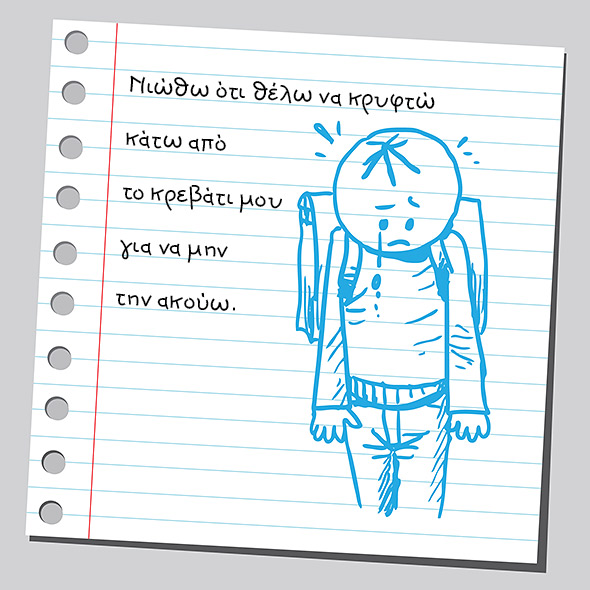 Νιώθω ότι θέλω να κρυφτώ
κάτω από
το κρεβάτι μου
για να μην
την ακούω.